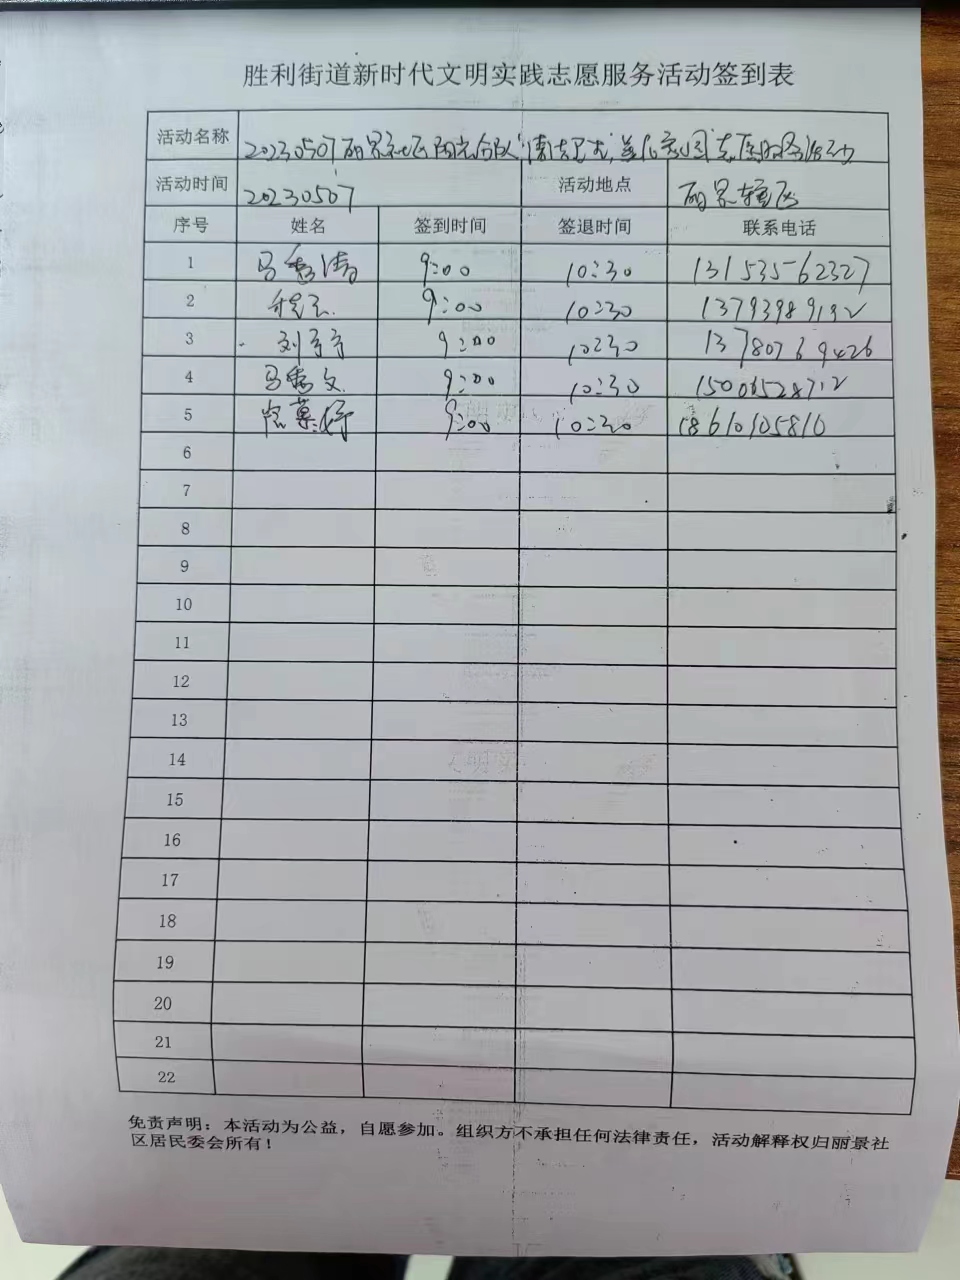 胜利街道新时代文明实践志愿服务活动签到表
活动名称 20230507丽景社区阳光分队“清洁卫士，美化家园”志愿服务活动
活动时间 20230507 活动地点 丽景辖区
序号 姓名 签到时间 签退时间 联系电话
1 马秀清 9:00 10:30 13153562327
2 9:00 10:30 13793989192
3 刘亭亭 9:00 10:30 13780769426
4 马秀文 9:00 10:30 15006528712
5 9:00 10:30 18610105810
6
7
8
9
10
11
12
13
14
15
16
17
18
19
20
21
22
免责声明：本活动为公益，自愿参加。组织方不承担任何法律责任，活动解释权归丽景社
区居民委会所有！